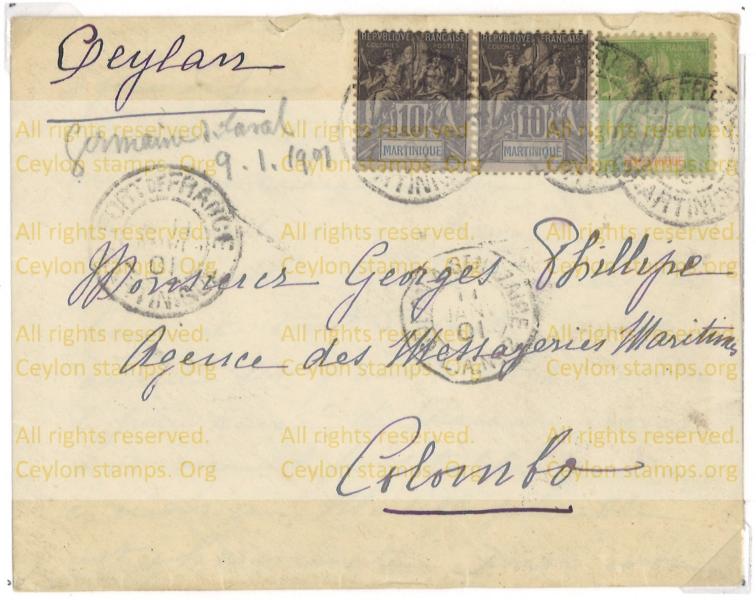 Ceylan
REPVBLIQVE FRANÇAISE
COLONIES POSTES
10
MARTINIQUE
REPVBLIQVE FRANÇAISE
COLONIES POSTES
10
MARTINIQUE
MARTINIQUE
Germaine
9.1.1901
FORT DE FRANCE
MARTINIQUE
Monsieur Georges Phillipe
11
JANV
01
Agence des Messageries Maritimes
Colombo
All rights reserved. All rights reserved. All rights reserved.
Ceylon stamps. Org Ceylon stamps. Org Ceylon stamps. Org
All rights reserved. All rights reserved. All rights reserved.
Ceylon stamps. Org Ceylon stamps. Org Ceylon stamps. Org
All rights reserved. All rights reserved. All rights reserved.
Ceylon stamps. Org Ceylon stamps. Org Ceylon stamps. Org
All rights reserved. All rights reserved. All rights reserved.
Ceylon stamps. Org Ceylon stamps. Org Ceylon stamps. Org